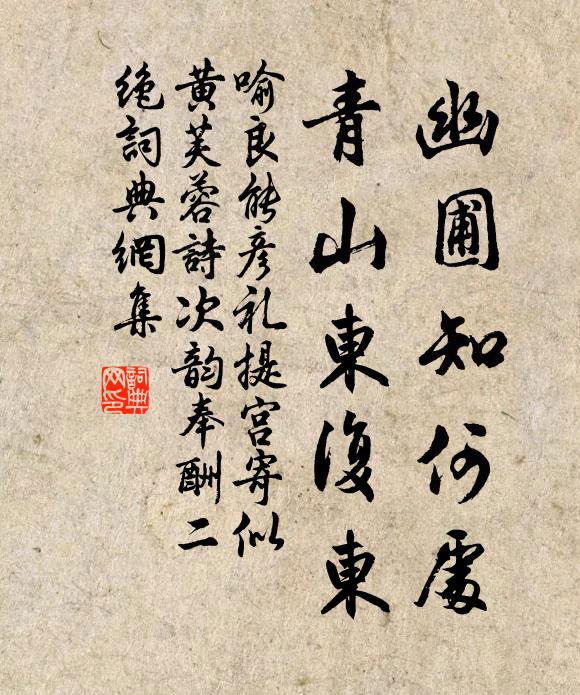 幽圃知何處
青山東復東
喻良能彥礼提宫寄似
黄芙蓉詩次韵奉酬二
絶詞典網集
詞典
网印